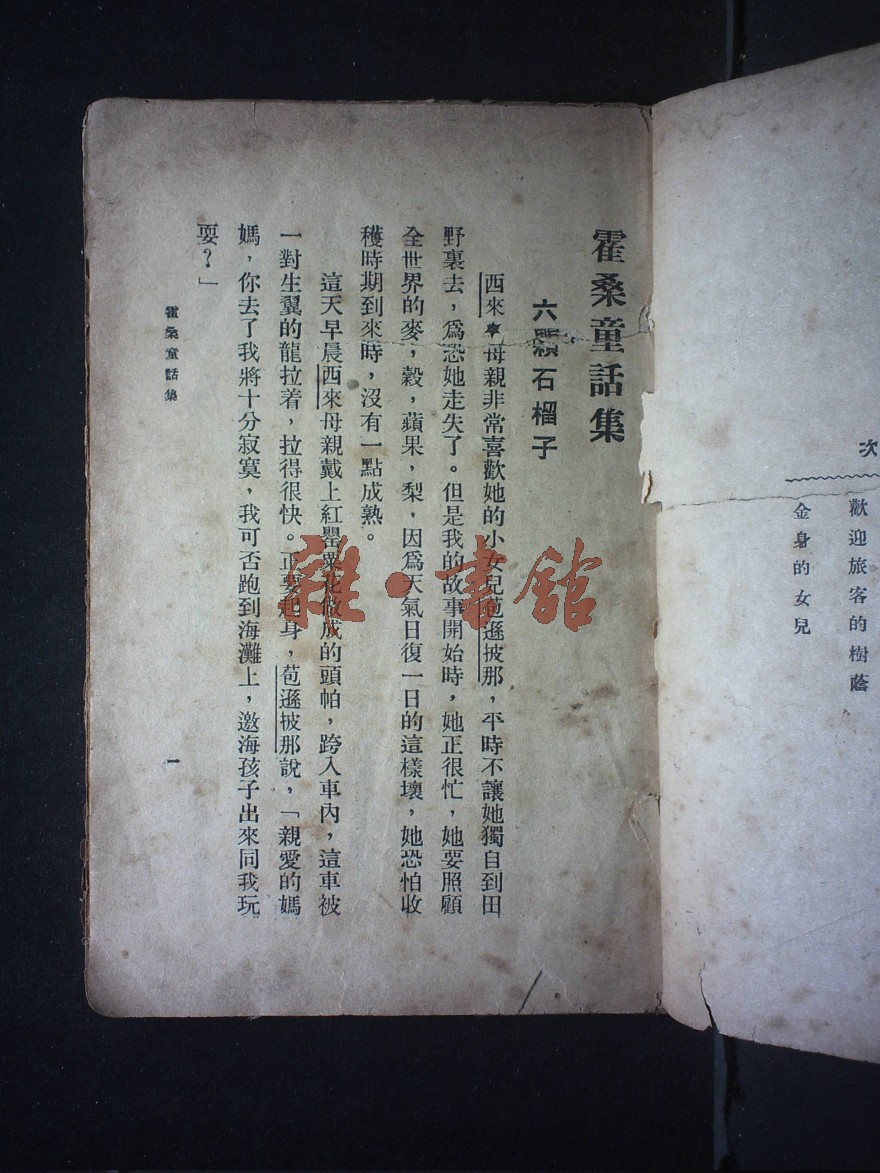 次
歡迎旅客的樹蔭
金身的女兒
霍桑童話集
六顆石榴子
西來母親非常喜歡她的小女兒苞遜披那，平時不讓她獨自到田
野裏去，爲恐她走失了。但是我的故事開始時，她正很忙，她要照顧
全世界的麥，穀，蘋果，梨，因爲天氣日復一日的這樣壞，她恐怕收
穫時期到來時，沒有一點成熟。
這天早晨西來母親戴上紅罌粟花做成的頭帕，跨入車內，這車被
一對生翼的龍拉着，拉得很快。正要起身，苞遜披那說，「親愛的媽
媽，你去了我將十分寂寞，我可否跑到海灘上，邀海孩子出來同我玩
耍？」
霍桑童話集
一
雜·書館